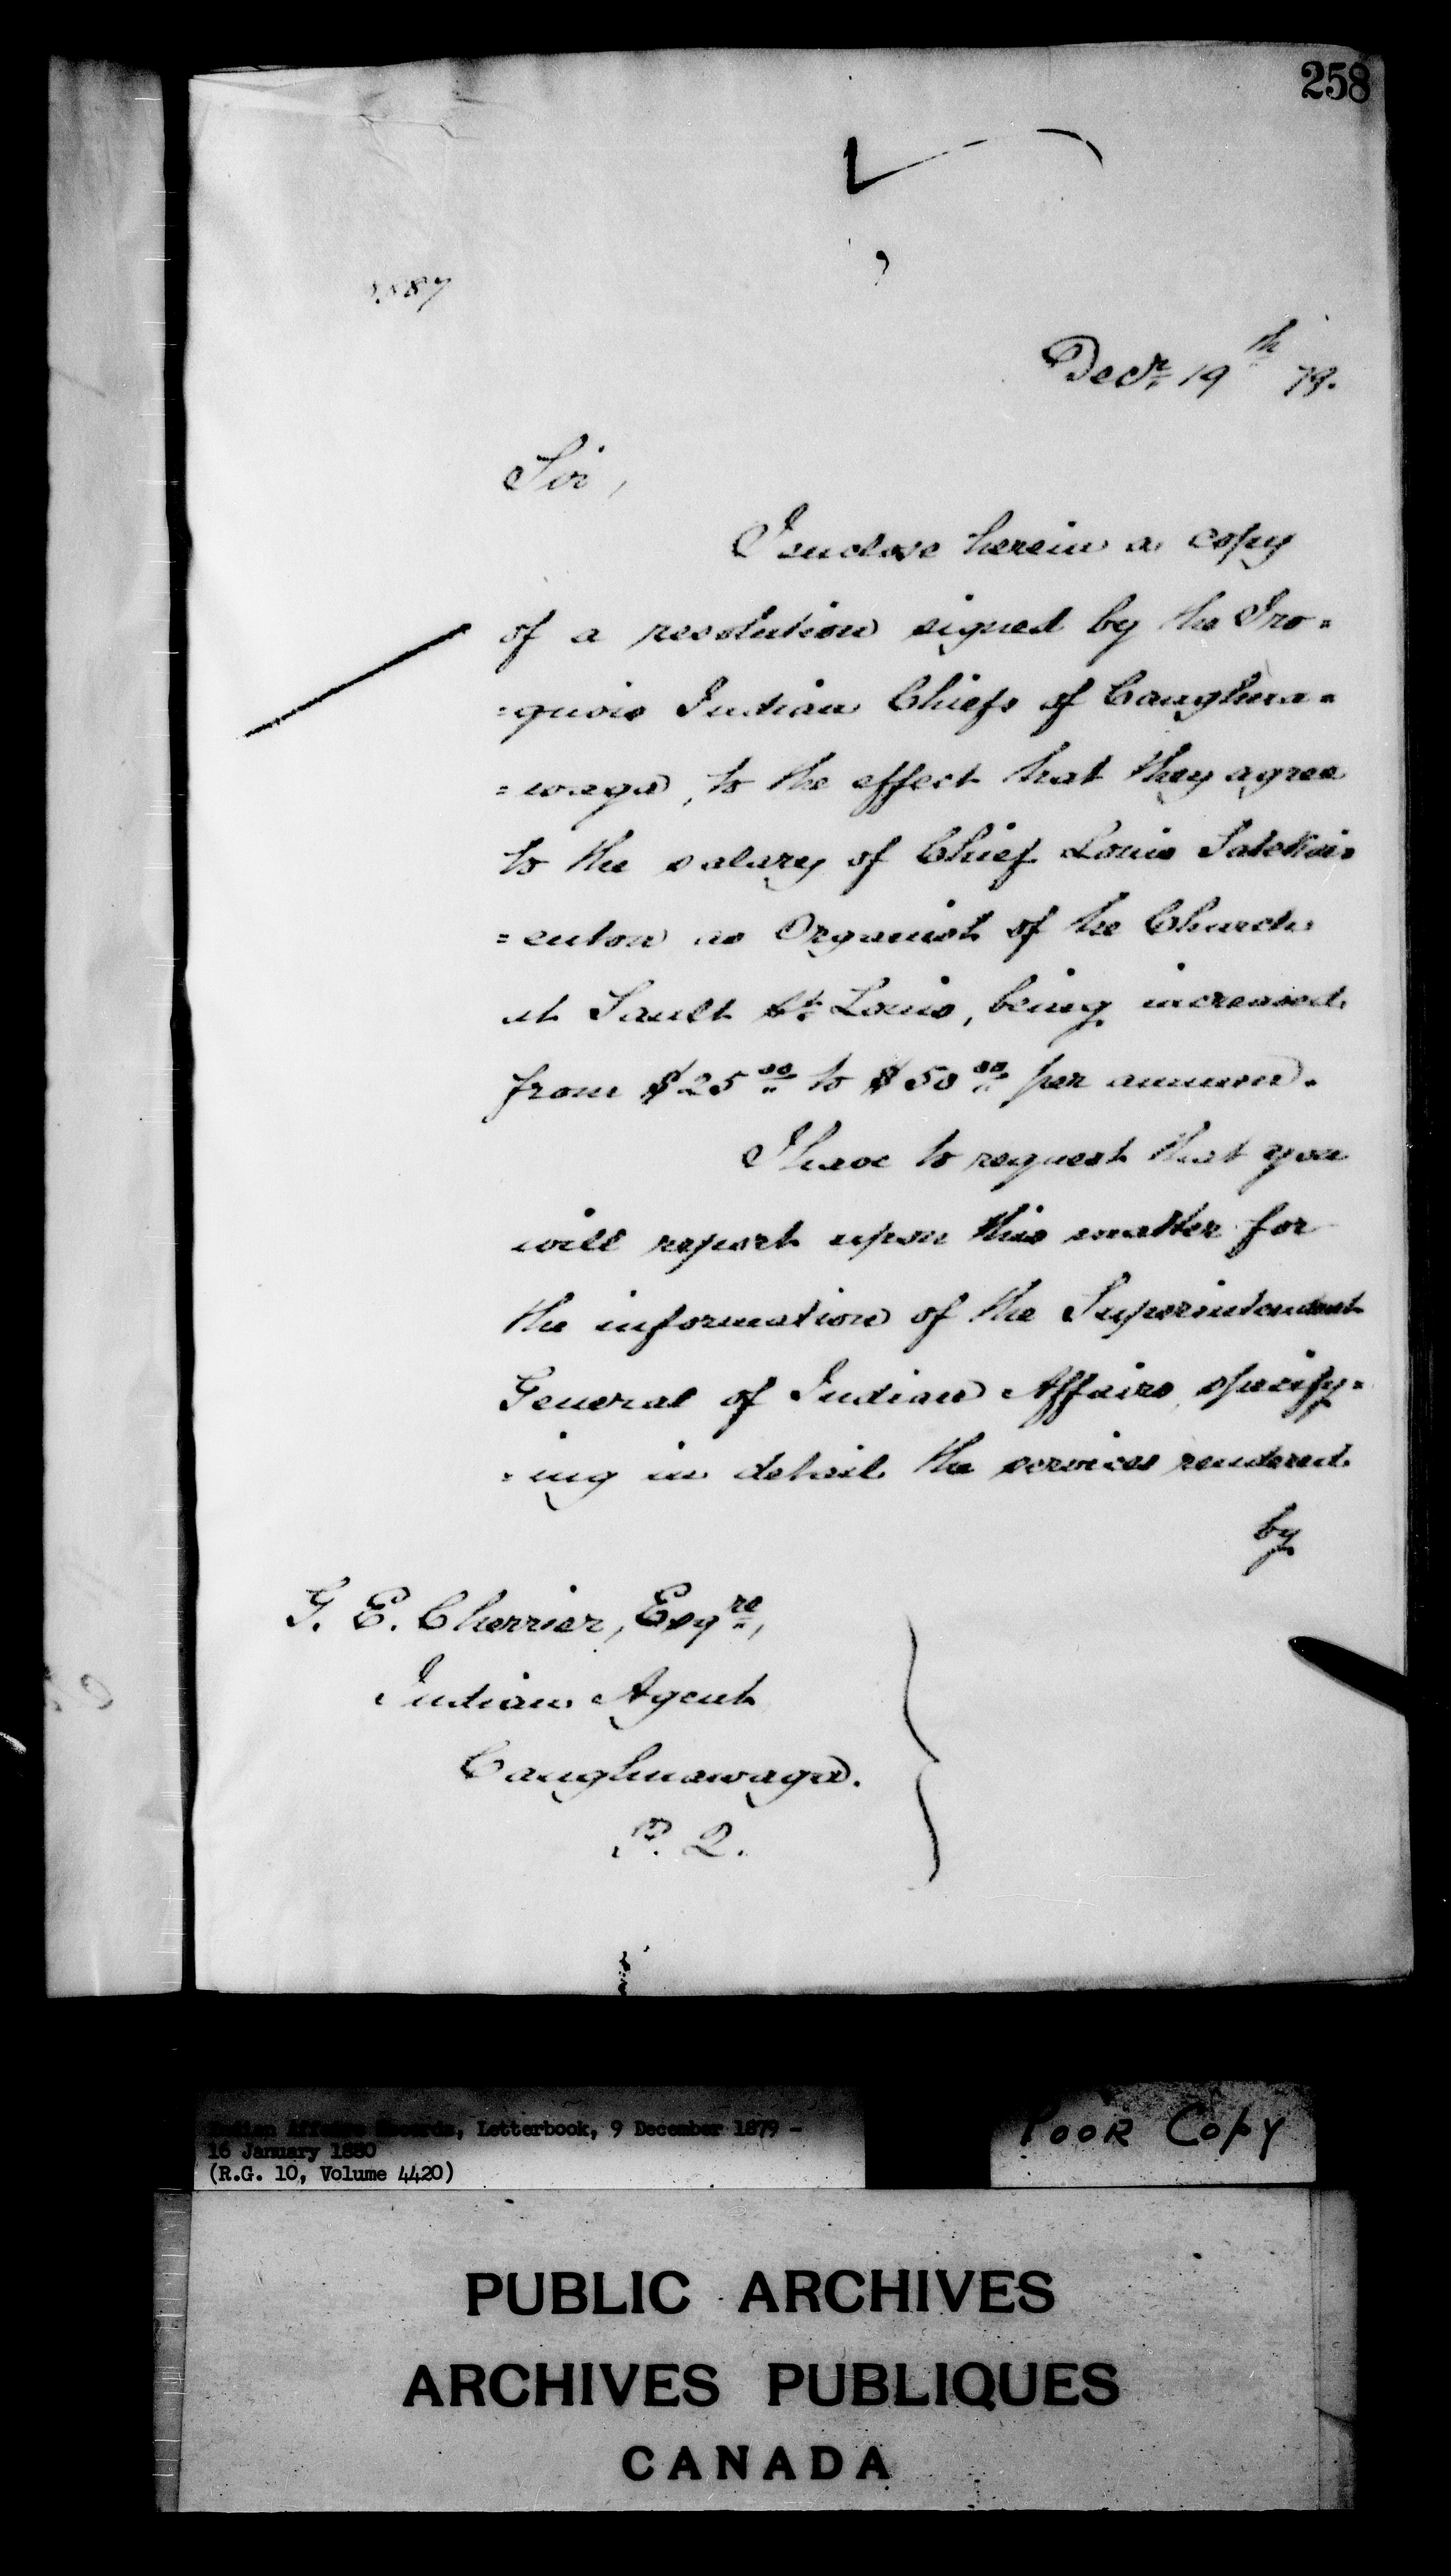 258
Decr. 19th 79.
Sir,
I enclose herein a copy
of a resolution signed by the Iro=
=quois Indian Chiefs of Caughna=
=waga, to the effect that they agree
to the salary of Chief Louis
=enton as Organist of the Church
at Sault St. Louis, being increased
from $25.00 to $50.00 per annum.
I have to request that you
will report upon this matter for
the information of the Superintendent
General of Indian Affairs, specify=
=ing in detail the services rendered
by
G. E. Cherrier, Esqre,
Indian Agent
Caughnawaga.
P. Q.
Indian Affairs Records, Letterbook, 9 December 1879 -
16 January 1880
(R.G. 10, Volume 4420)
POOR COPY
PUBLIC ARCHIVES
ARCHIVES PUBLIQUES
CANADA